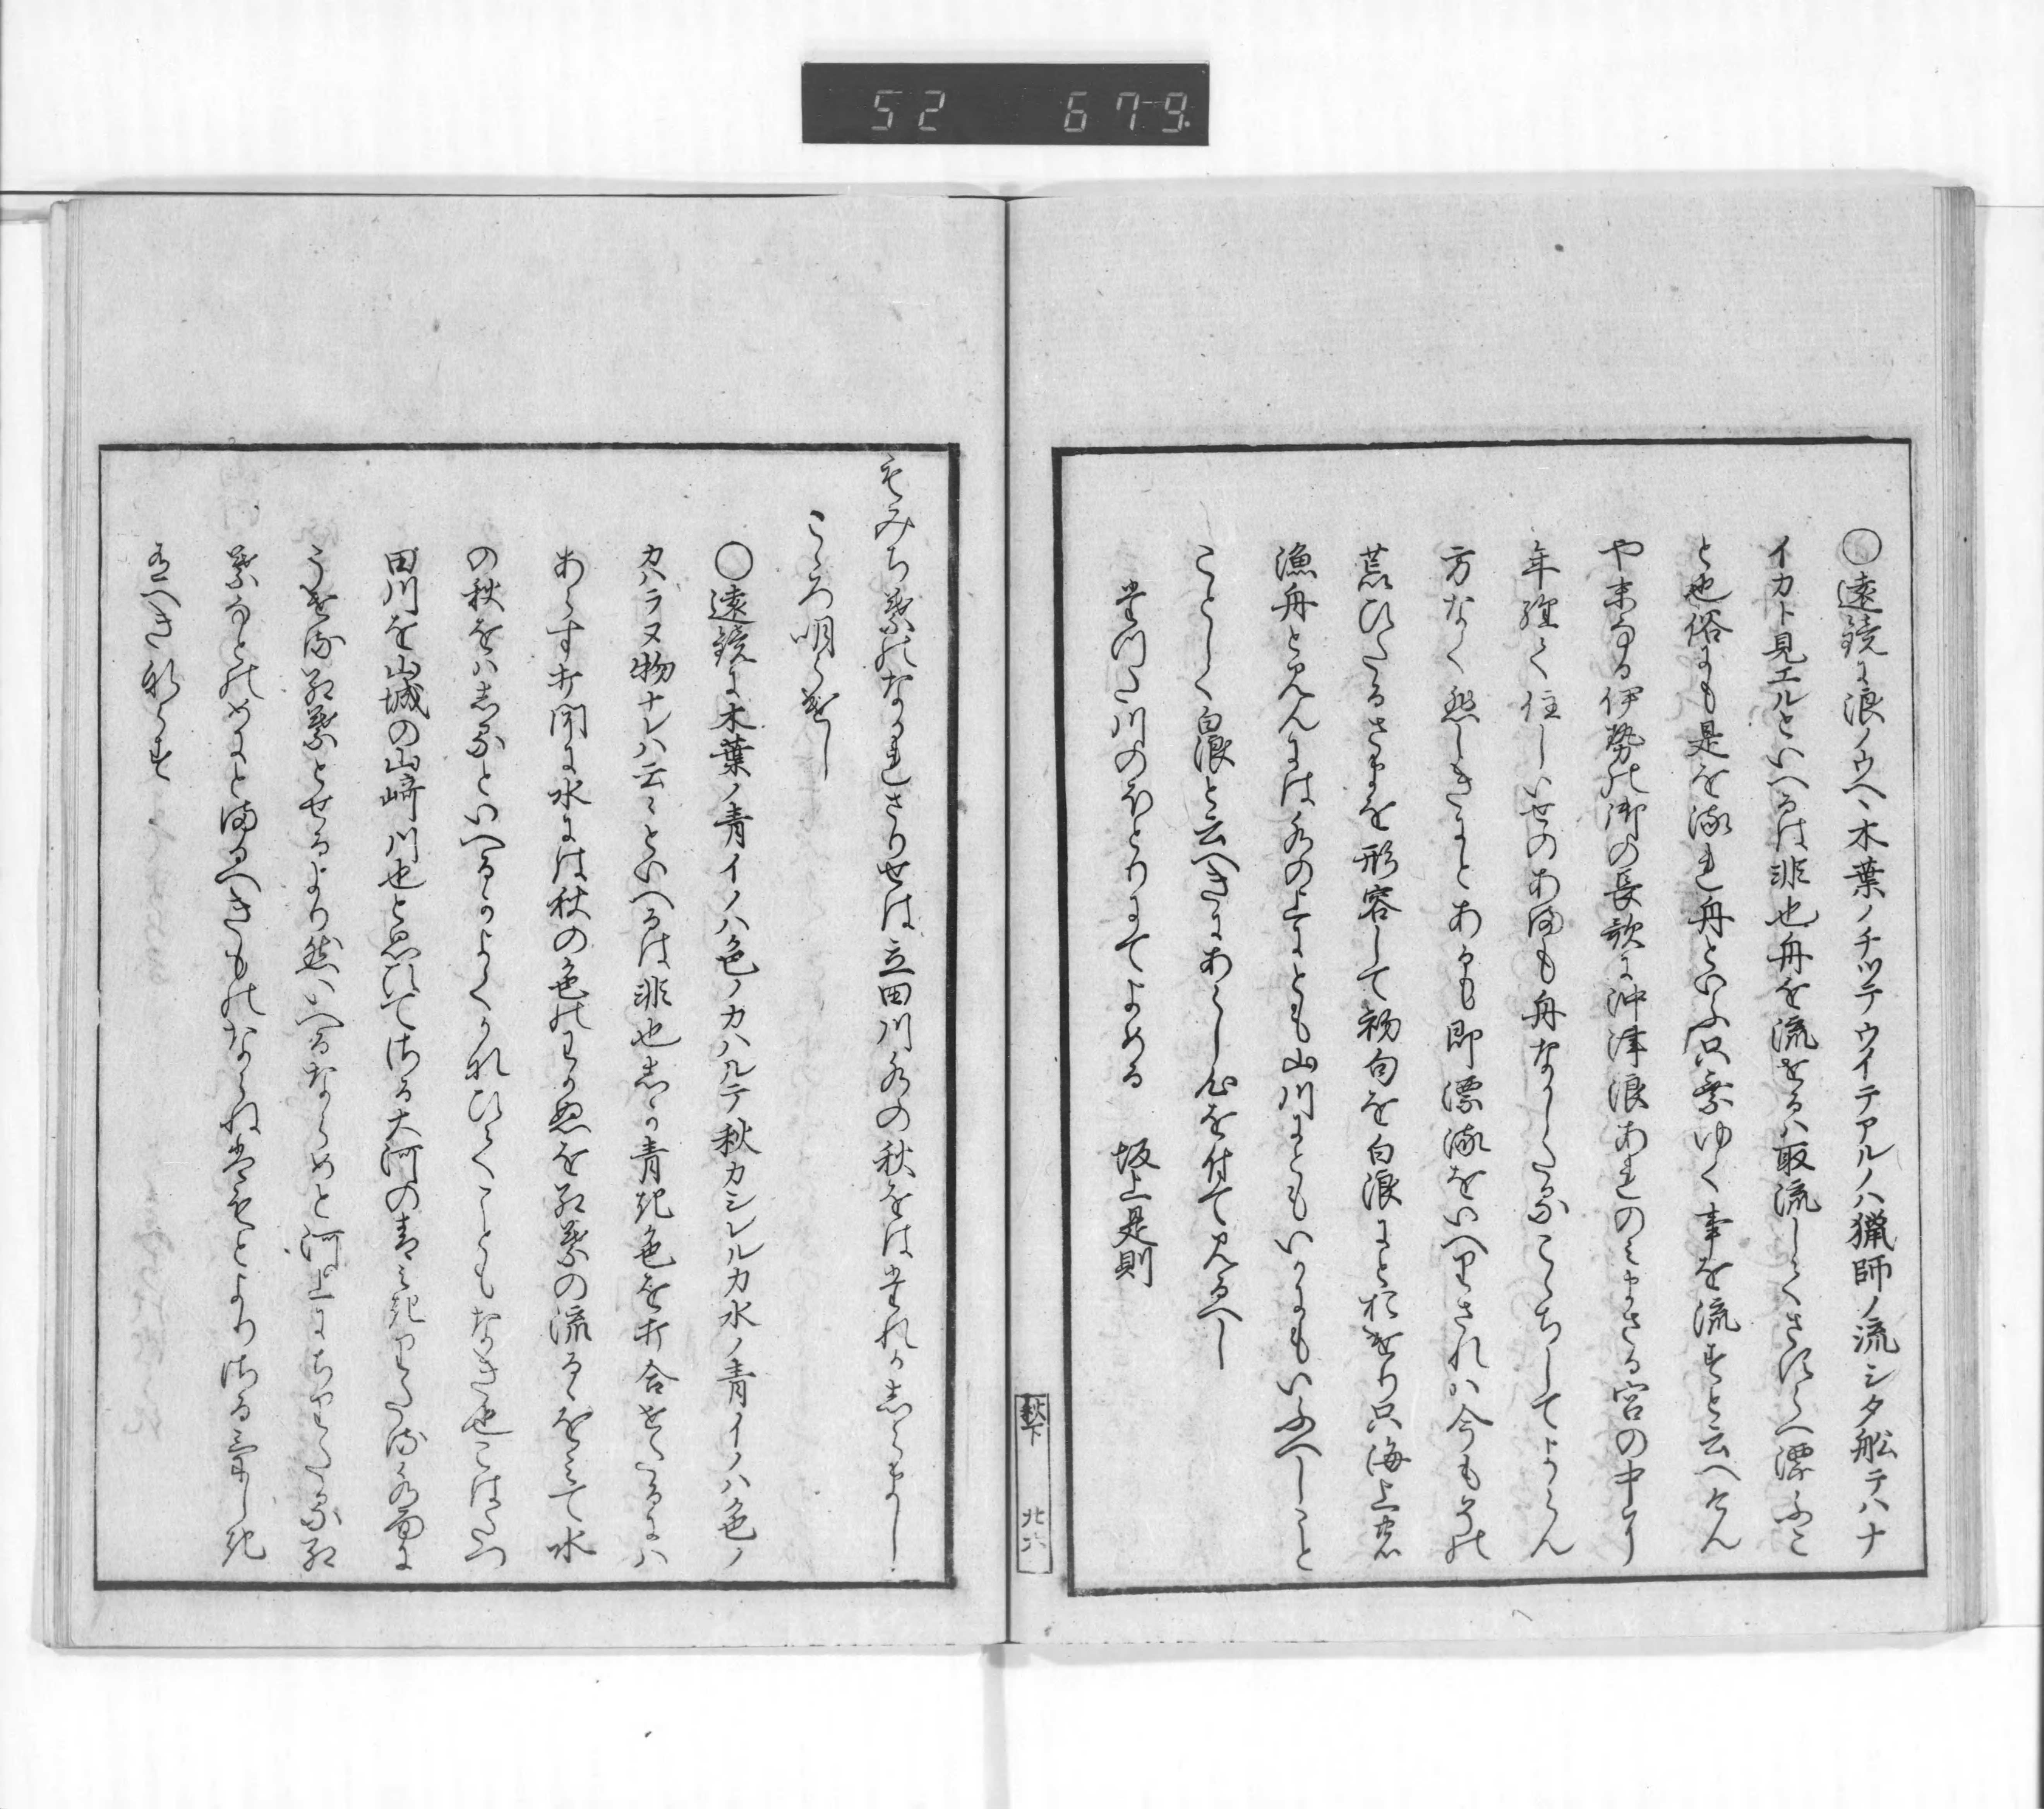 52 679
○遠鏡に浪ノウヘヽ木葉ノチツテウイテアルノハ猟師ノ流シタ舩テハナ
イカト見エルといへるは非也舟を流せるハ取流してさすらへ漂ふこ
と也俗にも是を流れ舟といふ只乗ゆく事を流すと云へけん
や末なる伊勢の御の長歌に沖津浪あれのみまさる宮の中は
年経て住しいせのあまも舟なかしたるこゝちしてよらん
方なく悲しきにとあるも即漂流をいへりされハ今もその
荒ひたるさまを形容して初句を白浪にと
漁舟と見んには水の上にとも山川にともいかにもいふへしこと
ことしく白浪と云へきにあらし心を付て見るへし
たつた川のほとりにてよめる　坂上是則
もみち葉のなかれさりせは立田川水の秋をはたれかしらまし
こゝろ明らけし
○遠鏡に木葉ノ青イノハ色ノカハルテ秋カシレルカ水ノ青イノハ色ノ
カハラヌ物ナレハ云々といへるは非也しか青き色を引合せたるにハ
あらす打聞に水には秋の色のわかぬを紅葉の流るゝをみて水
の秋をハしるといへるかよくかれひくこともなき也こはたつ
田川を山城の山崎川也と思ひてける大河の青みきりたる水面に
うける紅葉とせるより然いへるならめと河上にちりたる紅
葉なとのめにとまるへきものならねたもとより
有へきならす
秋下　北六